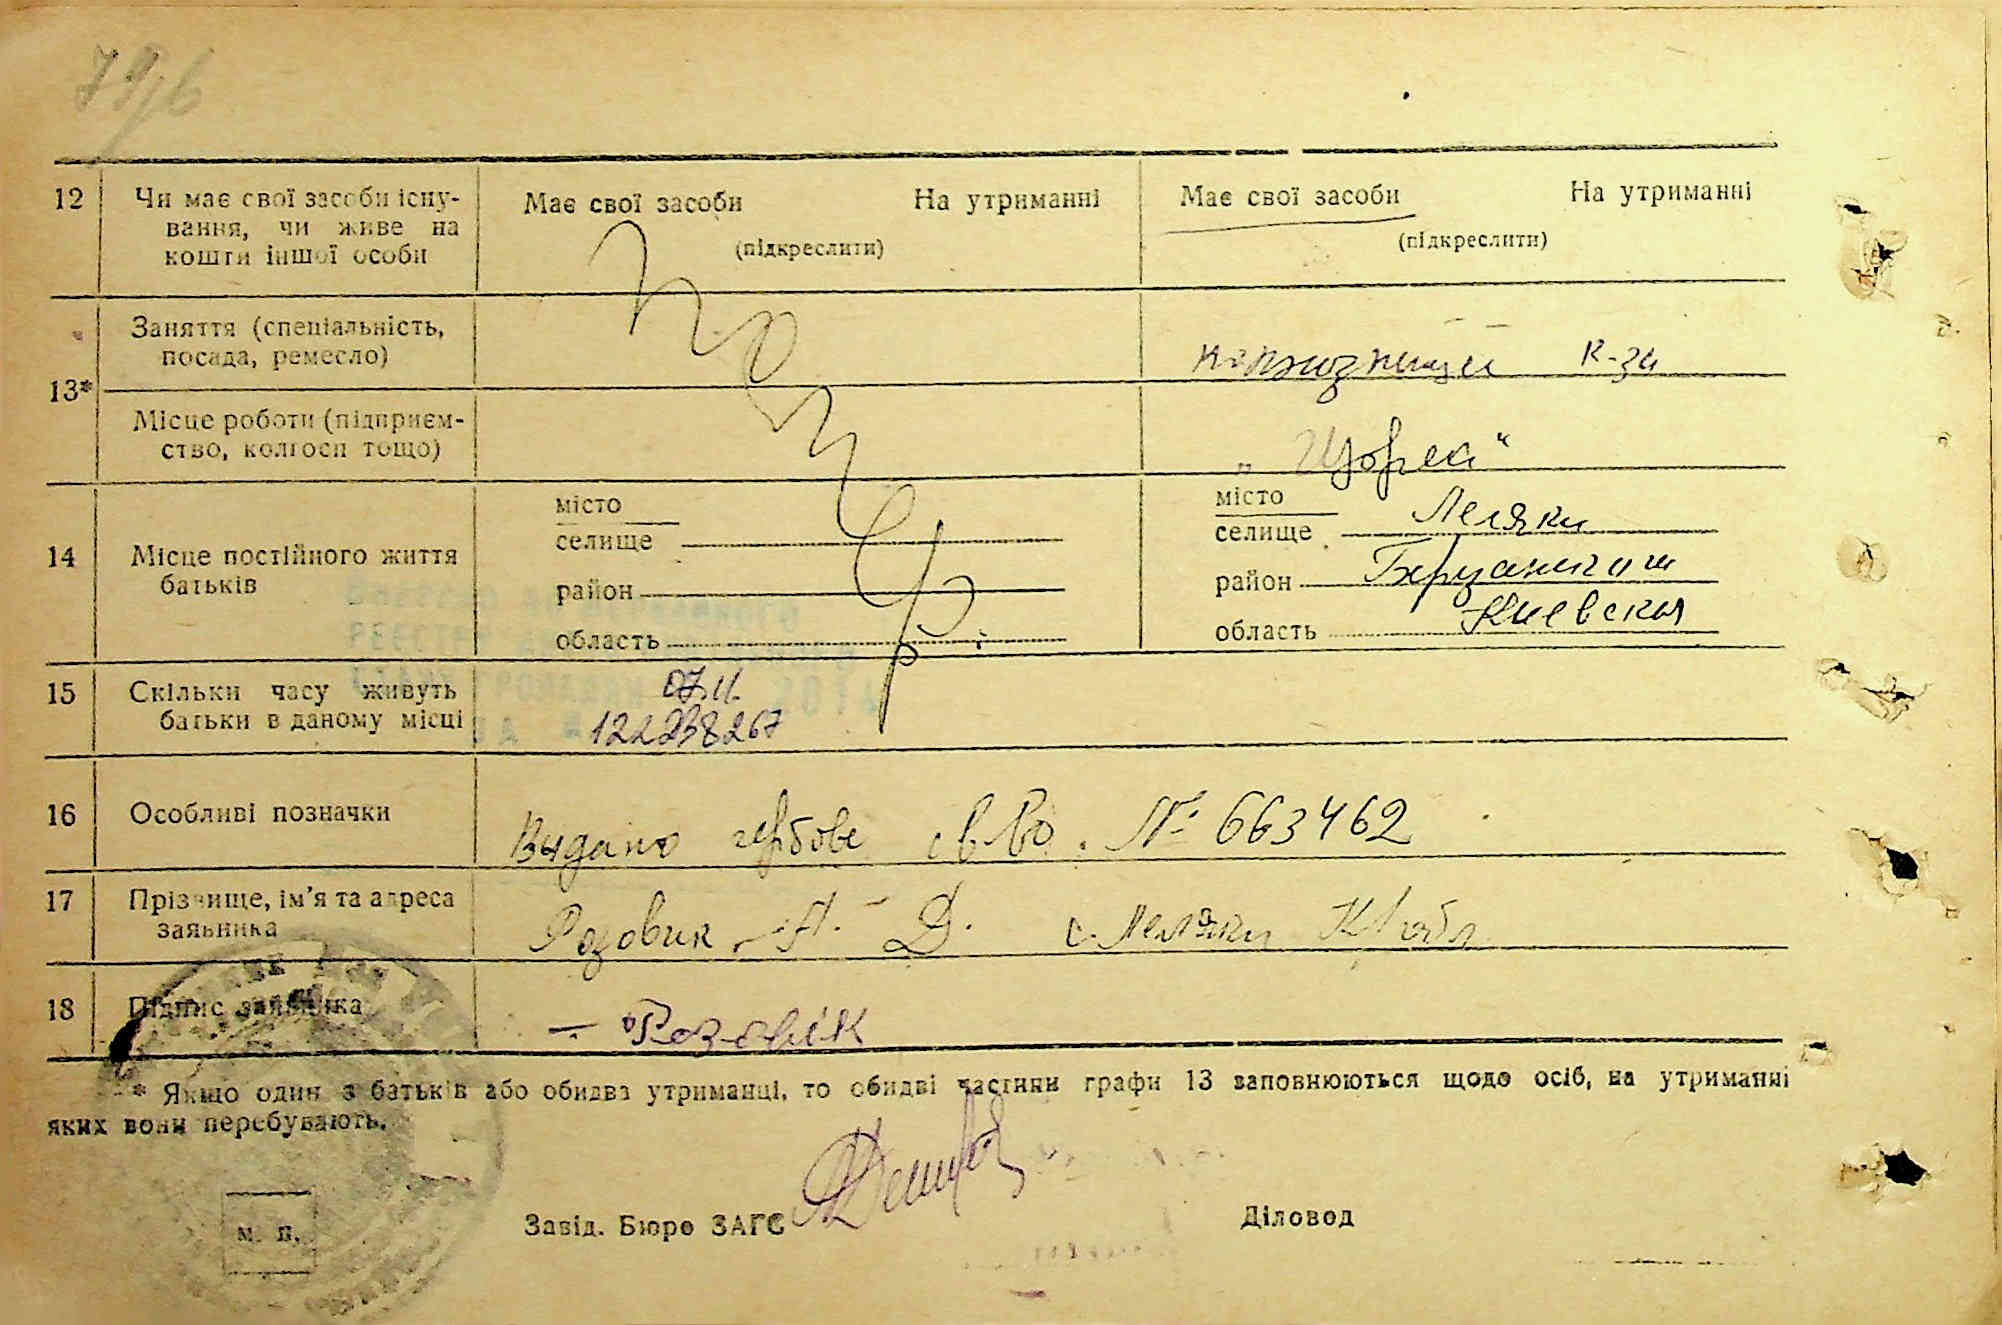 12 Чи має свої засоби існу-
вання, чи живе на
кошти іншої особи
Має свої засоби На утриманні
(підкреслити)
Має свої засоби На утриманні
(підкреслити)
13* Заняття (спеціальність,
посада, ремесло)
к-зи
Місце роботи (підприєм-
ство, колгосп тощо)
„Щорса“
14 Місце постійного життя
батьків
місто
селище
район
область
місто
селище Леляки
район
область Киевская
15 Скільки часу живуть
батьки в даному місці
122238267
16 Особливі позначки
Видано гербове св-во. № 663462
17 Прізвище, ім’я та адреса
заявника
Розовик А. Д. с. Леляки К обл
18 Підпис заявника
– Розовік
* Якщо один з батьків або обидва утриманці, то обидві частини графи 13 заповнюються щодо осіб, на утриманні
яких вони перебувають.
М. П.
Завід. Бюро ЗАГС
Діловод